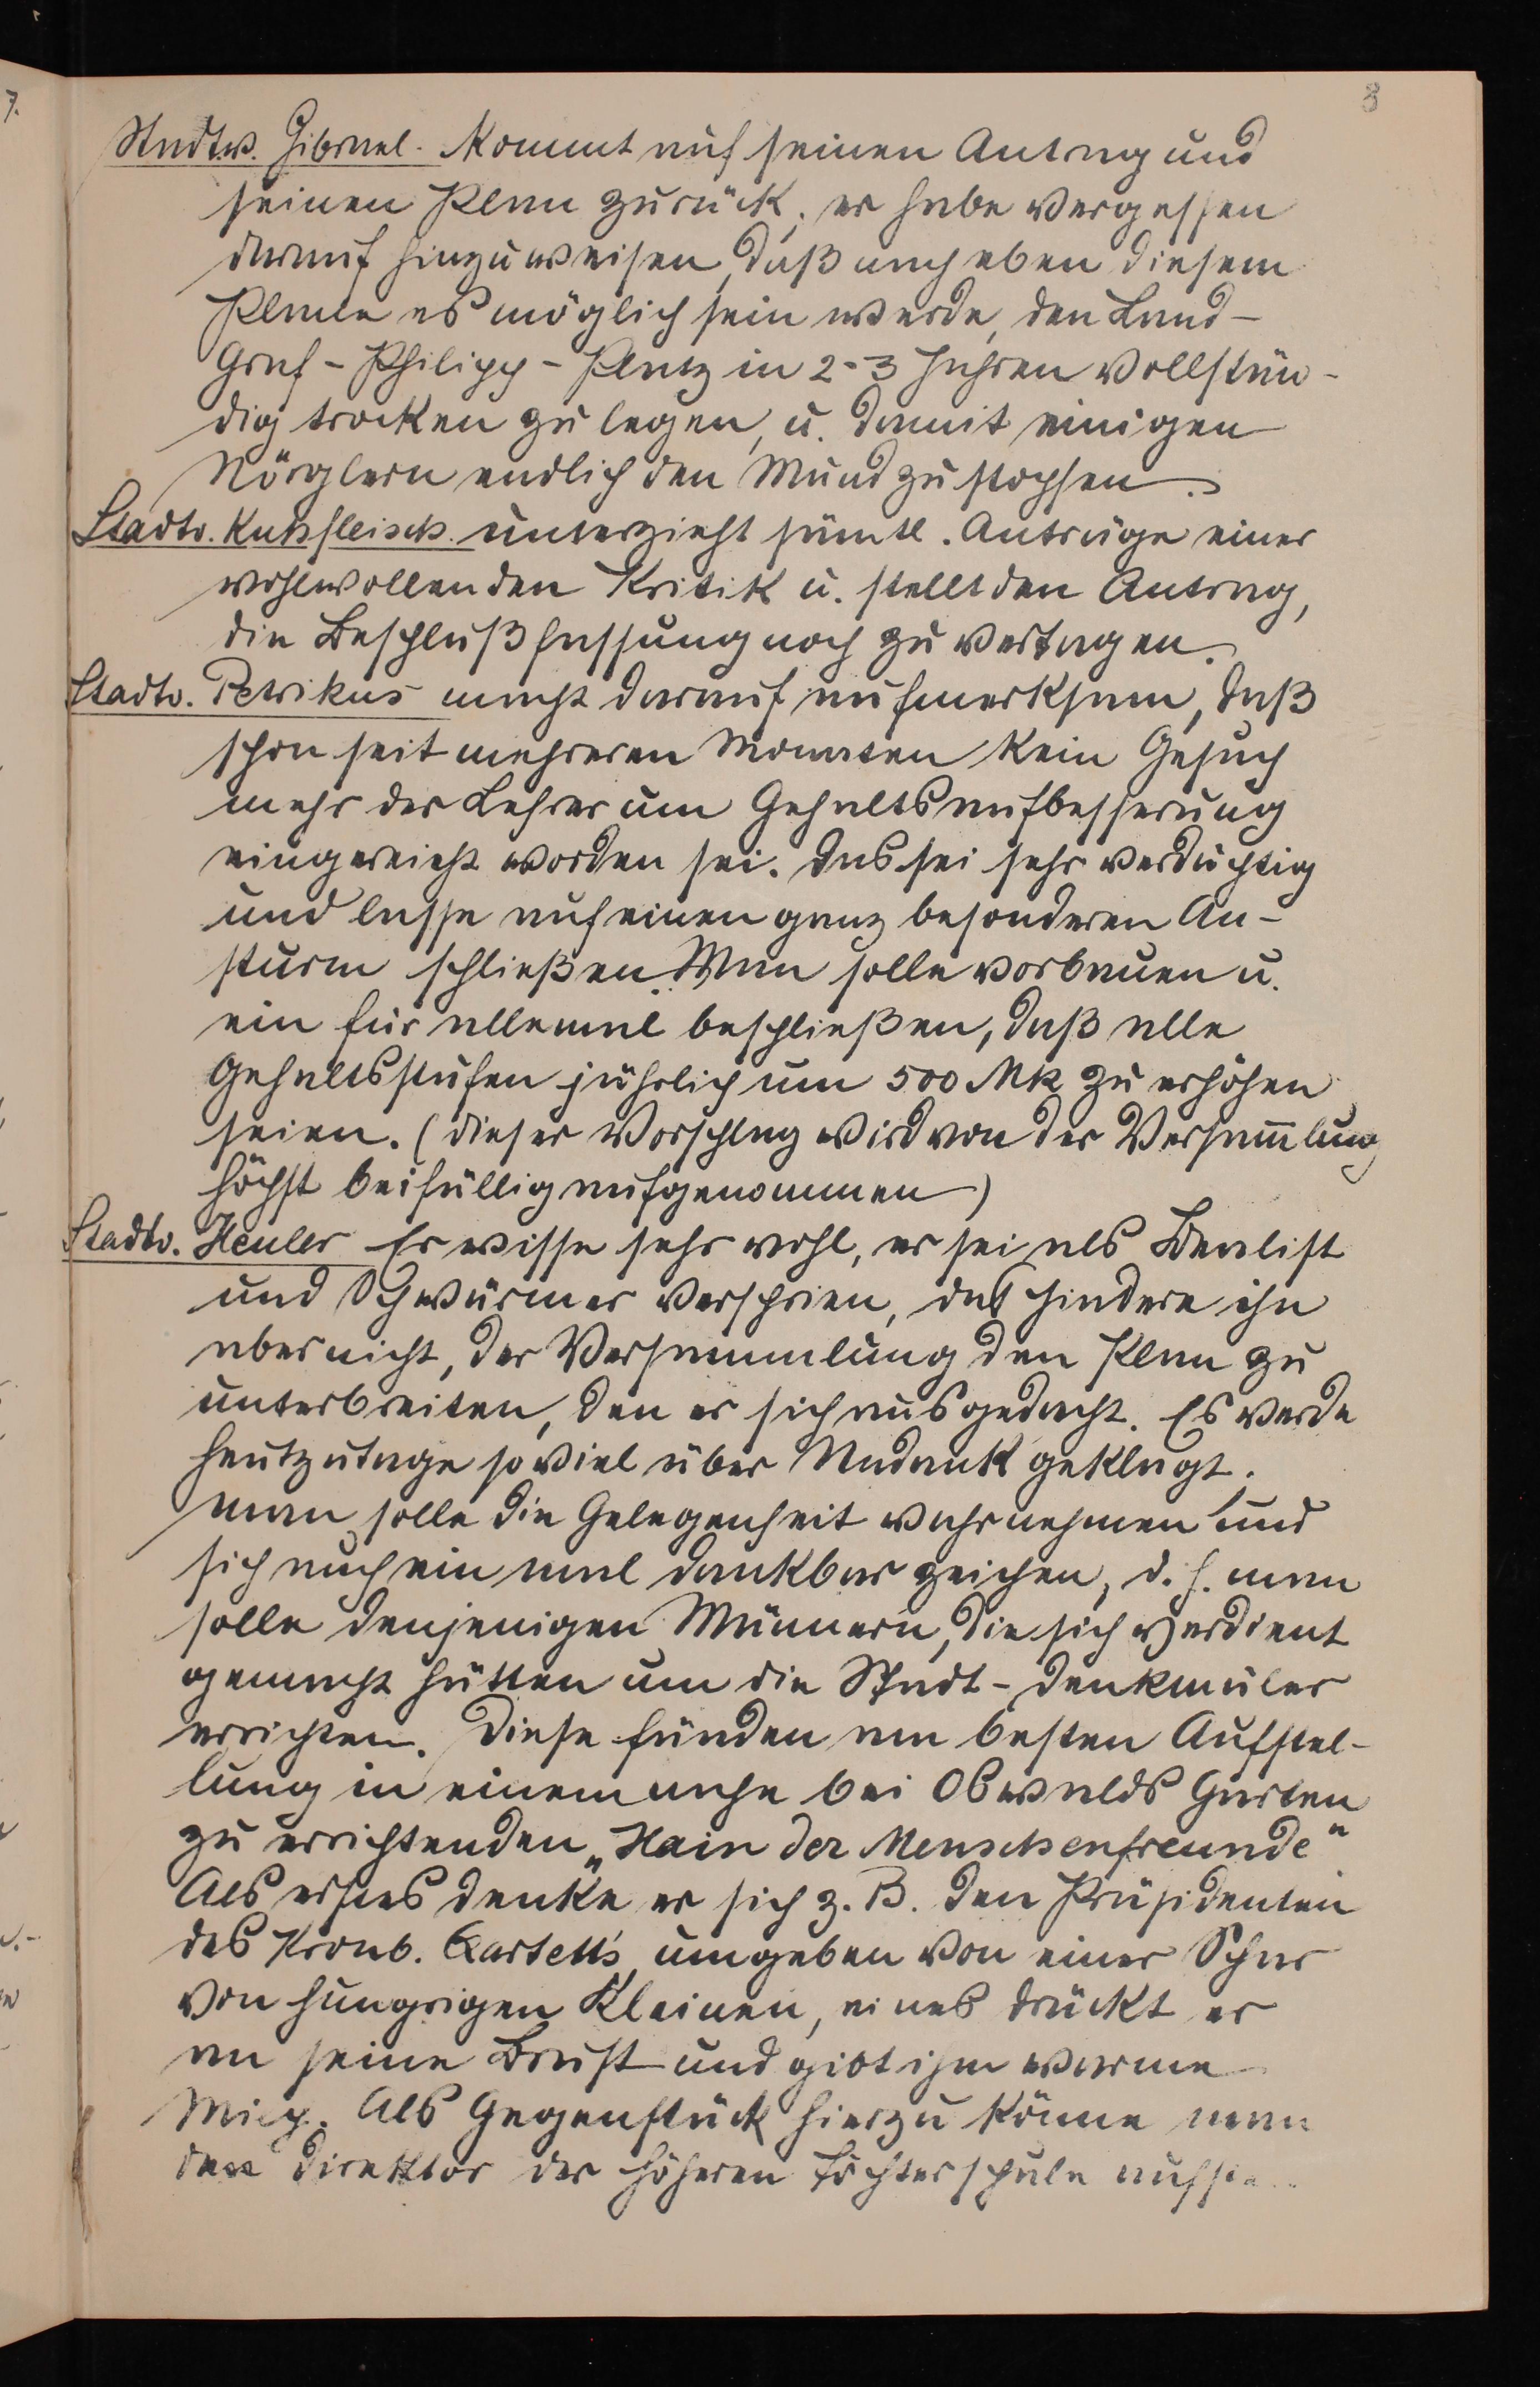 8
Stadtv. Gibrael. Kommt auf seinen Antrag und
seinen Plan zurück; er habe vergessen
darauf hinzuweisen, daß nach eben diesem
Plane es möglich sein werde, den Land-
Graf-Philipp-Platz in 2-3 Jahren vollstän-
dig trocken zu legen, u. damit einigen
Nörglern endlich den Mund zu stopfen.
Stadtv. Kuhfleisch. unterzieht sämtl. Anträge einer
wohlwollenden Kritik u. stellt den Antrag,
die Beschlußfassung noch zu vertagen.
Stadtv. Petrikus macht darauf aufmerksam, daß
schon seit mehreren Monaten kein Gesuch
mehr der Lehrer um Gehaltsaufbesserung
eingereicht worden sei. Das sei sehr verdächtig
und lasse auf einen ganz besonderen An-
sturm schließen. Man solle vorbauen u.
ein für allemal beschließen, daß alle
Gehaltsstufen jährlich um 500 Mk zu erhöhen
seien. (dieser Vorschlag wird von der Versam̅lung
höchst beifällig aufgenommen)
Stadtv. Heuler Er wisse sehr wohl, er sei als Idealist
und Schwärmer verschrien, das hindere ihn
aber nicht, der Versammlung den Plan zu
unterbreiten, den er sich ausgedacht. Es werde
heutzutage so viel über Undank geklagt;
man solle die Gelegenheit wahrnehmen und
sich auch ein mal dankbar zeichen, d. h. man
solle denjenigen Männern, die sich verdient
gemacht hätten um die Stadt - Denkmäler
errichten. Diese fänden am besten Aufstel-
lung in einem nahe bei Oswalds Garten
zu errichtenden „Hain der Menschenfreunde"
Als erstes denke er sich z. B. den Präsidenten
des Kronb. Qartett's, umgeben von einer Schar
von hungrigen Kleinen, eines drückt er
an seine Brust und gibt ihm warme
Milch. Als Gegenstück hierzu könne man
den Direktor der höheren Töchterschule